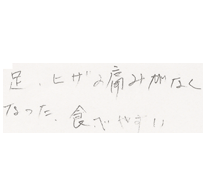 足、ヒザの痛みがなく
なった、食べやすい